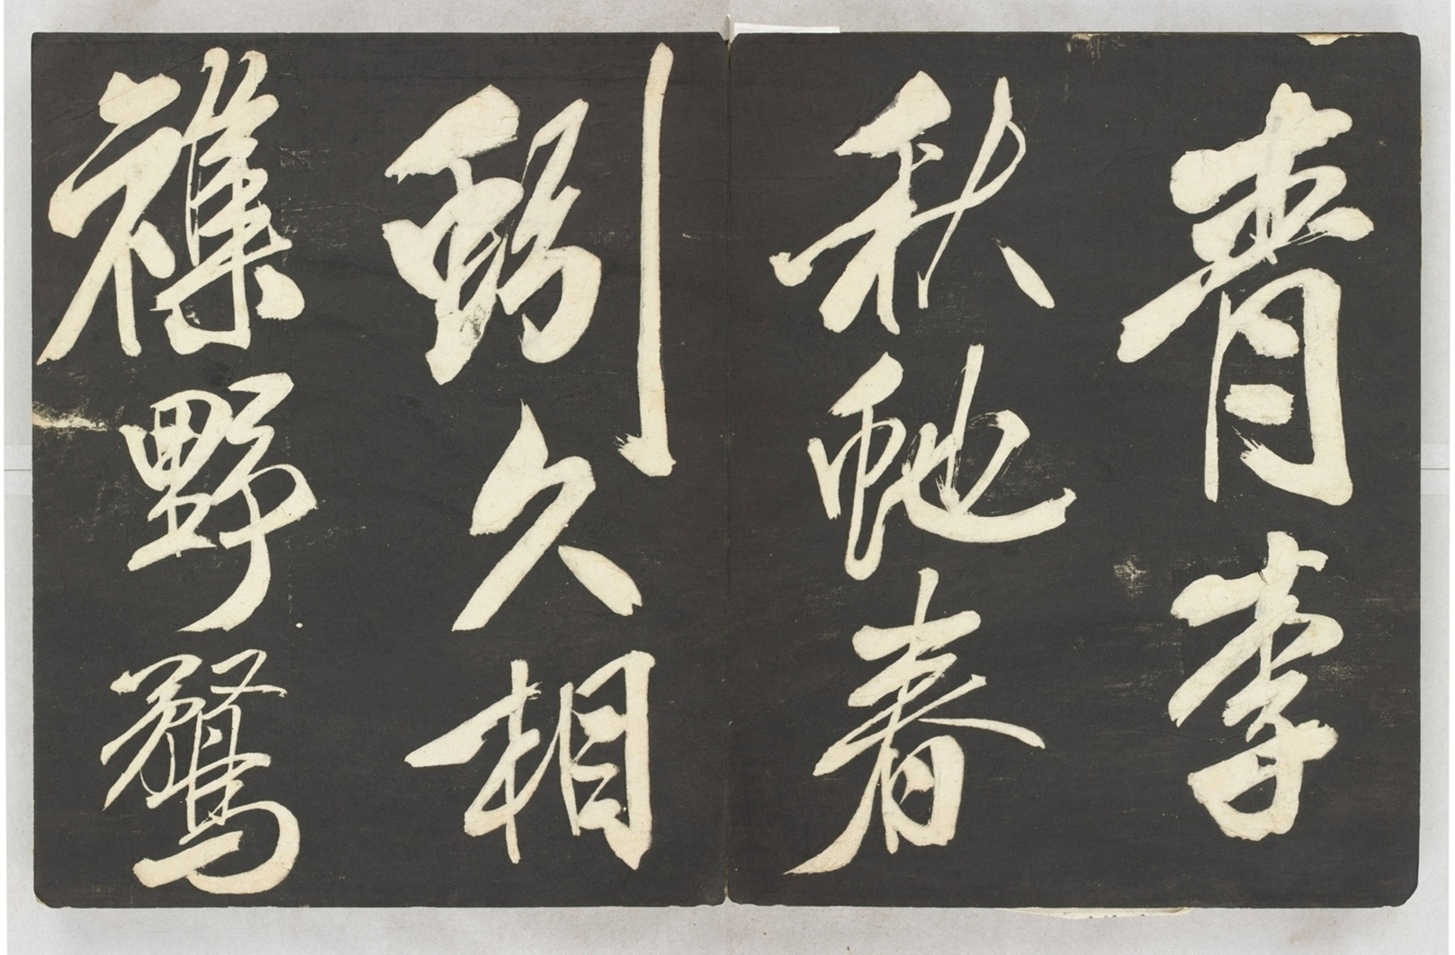 青李
秋虵春
蚓久相
襍野鶩